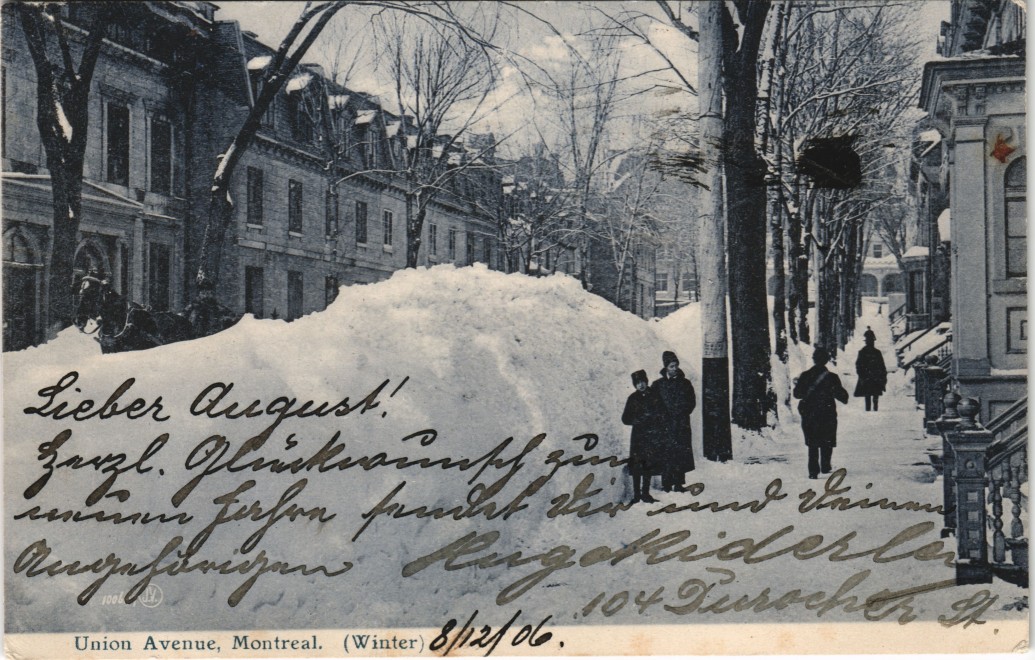 Lieber August!
Herzl. Glückwunsch zum
neuen Jahre sendet Dir und Deinen
Angehörigen Hugo Kiderlen
104 Durocher St.
1006 JV
Union Avenue, Montreal. (Winter) 8/12/06.